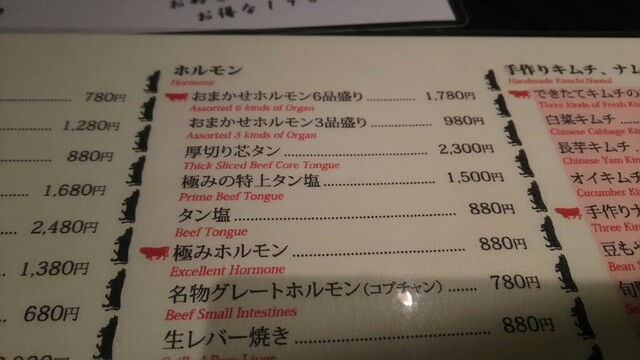 お得な
780円
1,280円
880円
1,680円
2,480円
1,380円
680円
ホルモン
Hormone
おまかせホルモン6品盛り 1,780円
Assorted 6 kinds of Organ
おまかせホルモン3品盛り 980円
Assorted 3 kinds of Organ
厚切り芯タン 2,300円
Thick Sliced Beef Core Tongue
極みの特上タン塩 1,500円
Prime Beef Tongue
タン塩 880円
Beef Tongue
極みホルモン 880円
Excellent Hormone
名物グレートホルモン(コプチャン) 780円
Beef Small Intestines
生レバー焼き 880円
手作りキムチ、ナム
Handmade Kimchi,Namul
できたてキムチの
Three kinds of Fresh
白菜キムチ
Chinese Cabbage
長芋キムチ
Chinese Yam
オイキムチ
Cucumber
手作りナ
Three
豆も
Bean
旬